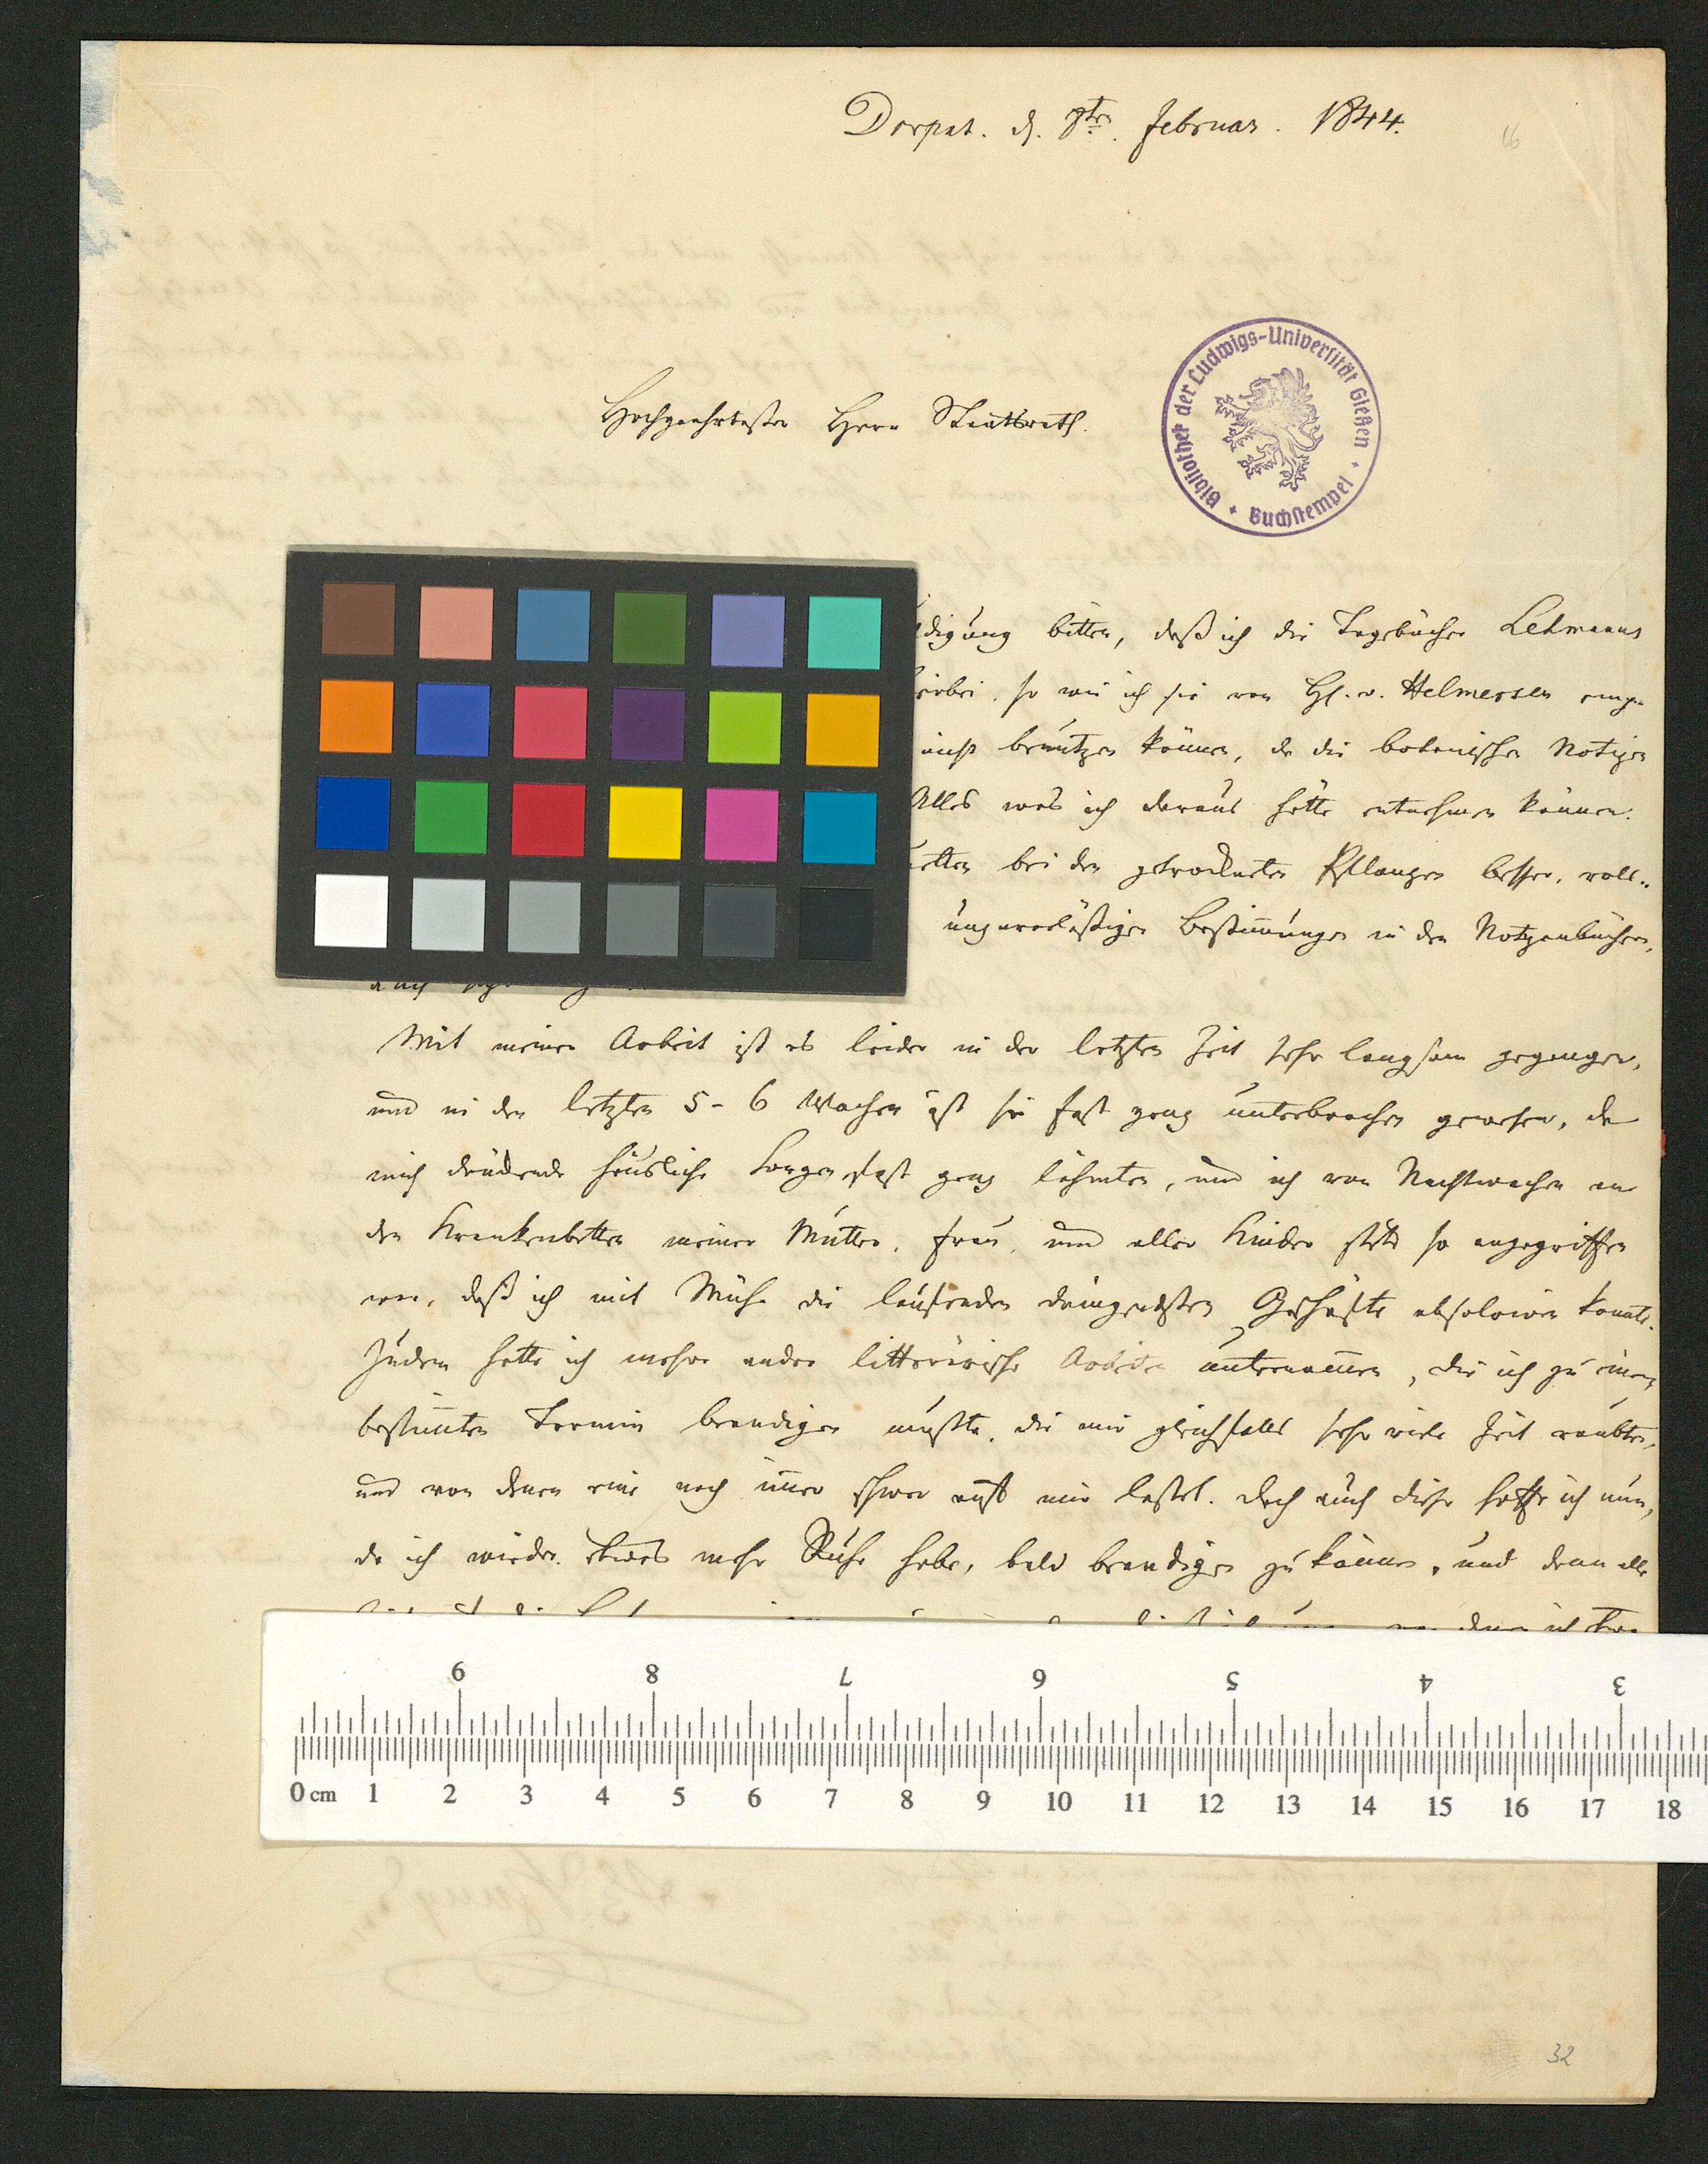 Dorpat. d. 8ten Februar. 1844.
16
Hochgeehrtester Herr Staatsrath.
Bibliothek der Ludwigs-Universität Gießen
Buchstempel
digung bitten, daß ich die Tagebücher Lehmanns
so wie ich sie von H. v. Helmersen empf
nicht benutzen können, da die botanischen Notizen
Alles was ich daraus hätte entnehmen können.
bei den getrockneten Pflanzen besser, voll-
unzuverläßigen Bestim̄ungen in den Notizenbüchern,
auch
Mit meiner Arbeit ist es leider in der letzten Zeit sehr langsam gegangen,
und in den letzten 5-6 Wochen ist sie fast ganz unterbrochen gewesen, da
mich drückende häusliche Sorgen fast ganz lähmten, und ich von Nachtwachen an
den Krankenbetten meiner Mutter, Frau, und aller Kinder stets so angegriffen
war, daß ich mit Mühe die laufenden dringendsten Geschäfte absolviren konnte.
Zudem hatte ich mehre andre litterärische Arbeiten unternom̄en, die ich zu einem
bestim̄ten Termin beendigen mußte, die mir gleichfalls sehr viele Zeit raubten,
und von denen eine noch im̄er schwer auf mir lastet. Doch auch diese hoffe ich nun,
da ich wieder etwas mehr Ruhe habe, bald beendigen zu können, und dann alle
9 8 7 6 5 4 3
0 cm 1 2 3 4 5 6 7 8 9 10 11 12 13 14 15 16 17 18
32